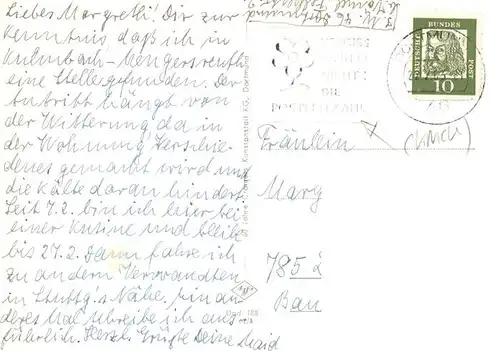 Liebes Margretli! Dir zur
Kenntnis daß ich in
Kulmbach-Mengersreuth
eine Stelle gefunden. Der
Antritt hängt von
der Witterung da in
der Wohnung Verschie-
denes gemacht wird und
die Kälte daran hindert.
Seit 7.2. bin ich hier bei
einer Kusine und bleibe
bis 27.2. Dann fahre ich
zu andern Verwandten
in Stuttg's Nähe. Ein an-
deres Mal schreibe ich aus-
führlich. Herzl. Grüße Deine Maid
DEUTSCHE BUNDESPOST
10
DIE
POSTLEITZAHL
Kunstanstalt KG, Dortmund
188
Fräulein
Marg
785
Bau